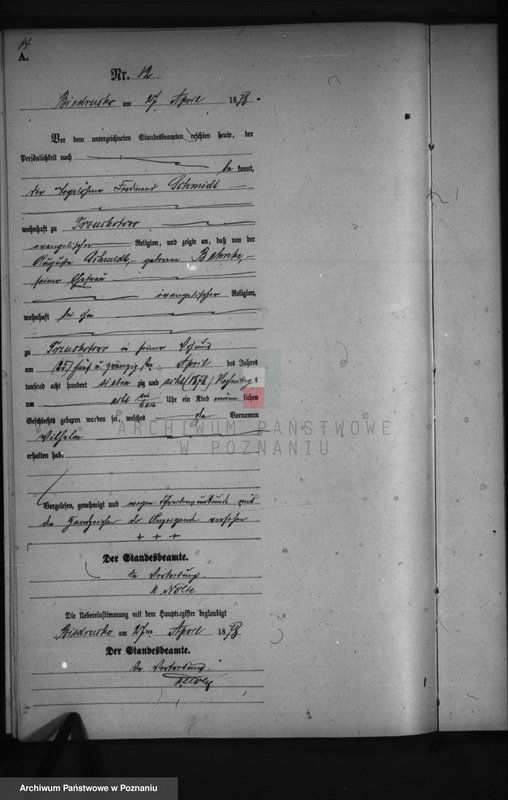 14
A.
Nr. 12
Biedrusko am 27 April 1878.
Vor dem unterzeichneten Standesbeamten erschien heute, der
Persönlichkeit nach
be kannt,
der Tagelöhner Ferdinand Schmidt
wohnhaft zu Trzuskotowo
evangelischer Religion, und zeigte an, daß von der
Auguste Schmidt, geborene Behnke,
seiner Ehefrau
evangelischer Religion,
wohnhaft bei ihm
zu Trzuskotowo in seiner Wohnung
am (25) fünf u. zwanzig ten April des Jahres
tausend acht hundert sieben zig und acht (1878) Nachmittags
um acht ein halb Uhr ein Kind männ lichen
Geschlechts geboren worden sei, welches die Vornamen
Wilhelm
erhalten habe.
Vorgelesen, genehmigt und wegen Schreibensunkunde mit
den Handzeichen des Anzeigenden versehen
+ + +
Der Standesbeamte.
In Vertretung.
Nolte
Die Uebereinstimmung mit dem Hauptregister beglaubigt
Biedrusko am 27ten April 1878
Der Standesbeamte.
In Vertretung.
Nolte
ARCHIWUM PAŃSTWOWE
W POZNANIU
Archiwum Państwowe w Poznaniu